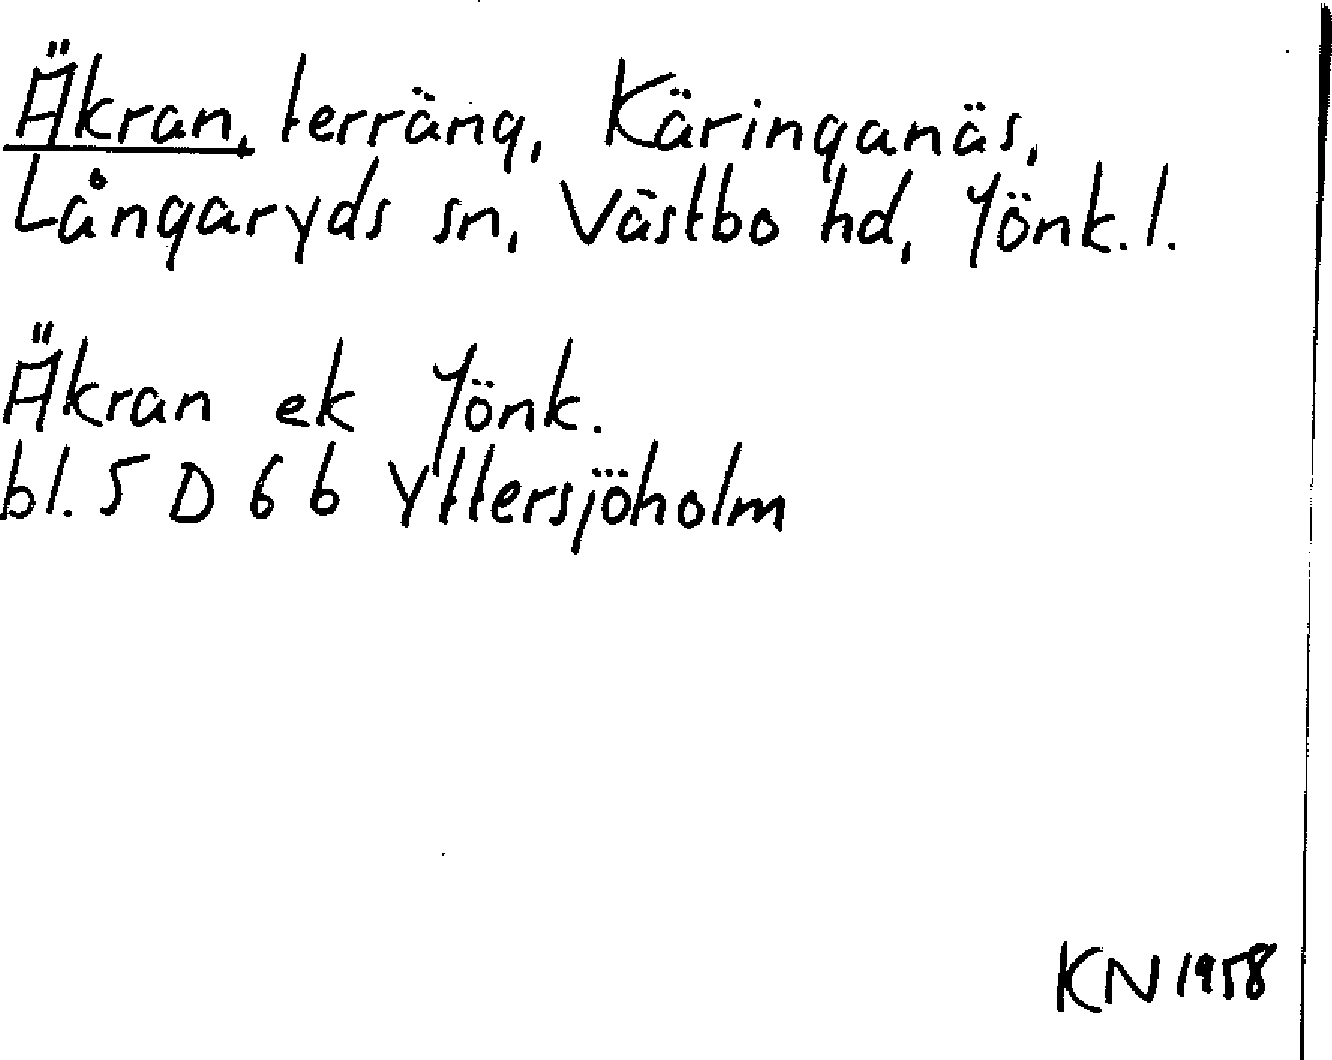 Äkran, terräng, Käringanäs,
Långaryds sn, Västbo hd, Jönk. l.
Äkran ek Jönk.
bl. 5 D 6 b Yttersjöholm
KN 1958